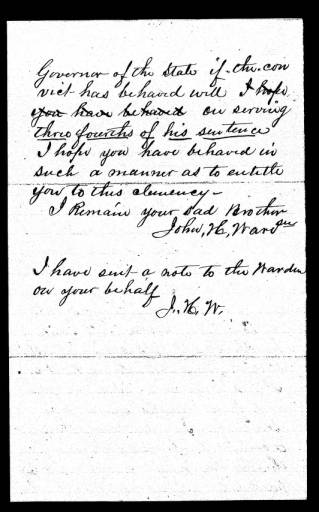 Governor of the State if the con
vict has behaved well I hope
you have behaved on serving
three fourths of his sentence
I hope you have behaved in
such a manner as to entitle
you to this clemency -
I Remain your Sad Brother
John, H, Ward
I have sent a note to the Warden
on your behalf
J. H. W.